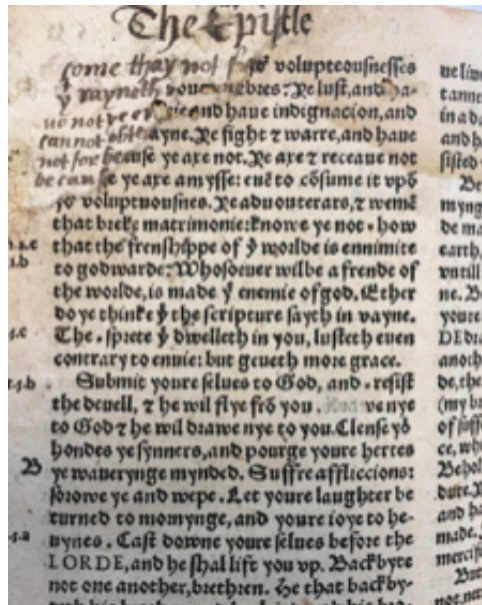 The Epistle
come thay not frõ yoʳ volupteousnesses
ẏ rayneth youre mẽbres: Ye lust, and ha-
ue not ye enuie and haue indignacion, and
cannot obtayne. Ye fight ⁊ warre, and haue
not for because ye axe not. Ye axe ⁊ receaue not
because ye axe amysse: euẽ to cõsume it vpõ
yoʳ voluptuousnes. Ye aduouterars, ⁊ wemẽ
that breke matrimonie: knowe ye not · how
that the frenshippe of ẏ worlde is ennimite
to godwarde: Whosoeuer wilbe a frende of
the worlde, is made ẏ enemie of god. Ether
do ye thinke ẏ the scripture sayth in vayne.
The · sprete ẏ dwelleth in you, lusteth euen
contrary to enuie: but geueth more grace.
Submit youre selues to God, and · resist
the deuell, ⁊ he wil flye frõ you. ve nye
to God ⁊ he wil drawe nye to you. Clense yoʳ
hondes ye synners, and pourge youre hertes
B ye waueryinge mynded. Suffre affliccions:
sorowe ye and wepe. Let youre laughter be
turned to mornynge, and youre ioye to he-
uynes. Cast downe youre selues before the
LORDE, and he shal lift you vp. Backbyte
not one another, brethren. He that backby-
earth,
vntill
ne. B
youre
anoth
de, the
(my b
of suff
ce, wh
Behol
dure. Y
and ha
made.
mercif
But